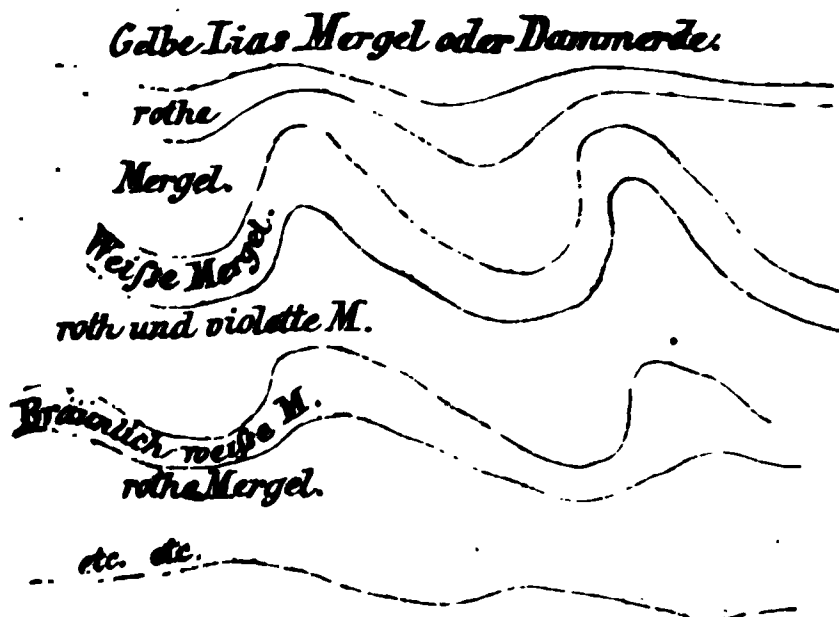 Gelbe Lias Mergel oder Dammerde.
rothe
Mergel.
Weiße Mergel.
roth und violette M.
Bräunlich weiße M.
rothe Mergel.
etc. etc.